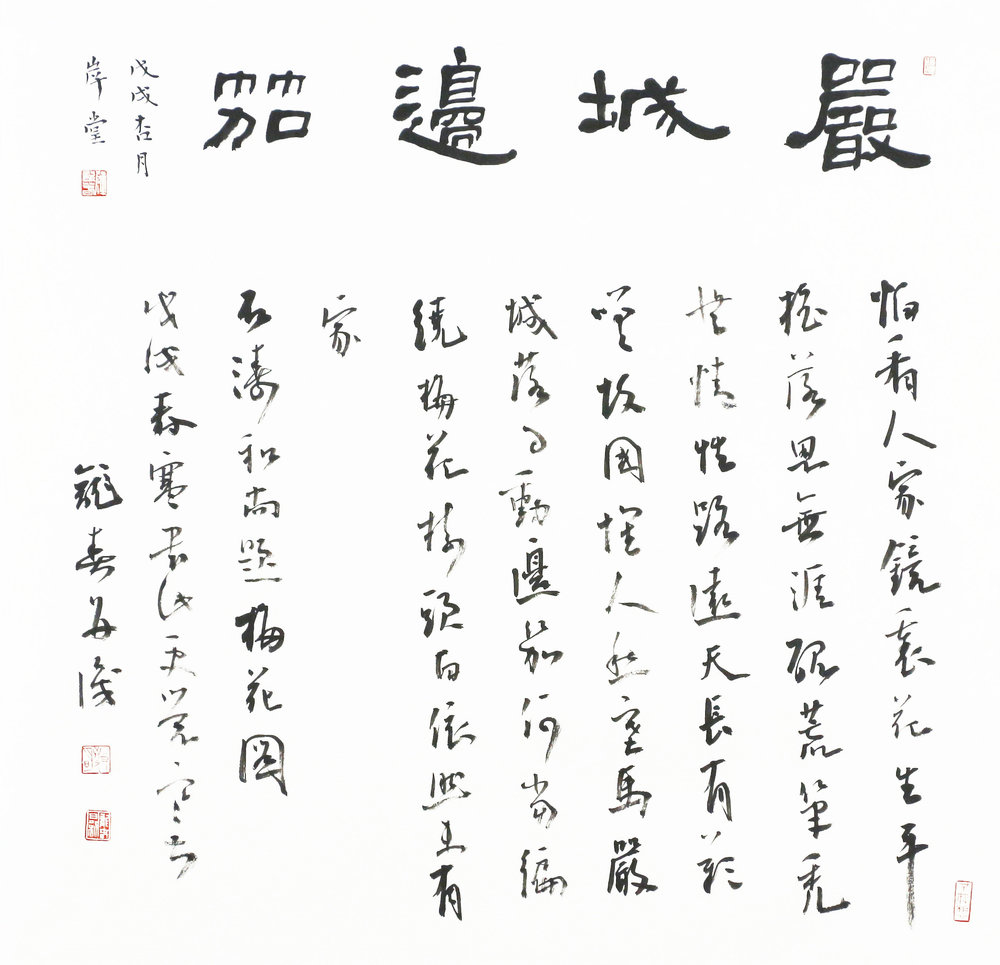 嚴城邊笳
戊戌杏月
岸堂
怕看人家鏡裏花生平
搖落思無涯硯荒筆禿
無情性路遠天長有歎
嗟故國懷人愁塞馬嚴
城落日動邊笳何當編
繞梅花樹頭白依然未有
家
石濤和尚題梅花圖
戊戌春寒書此更